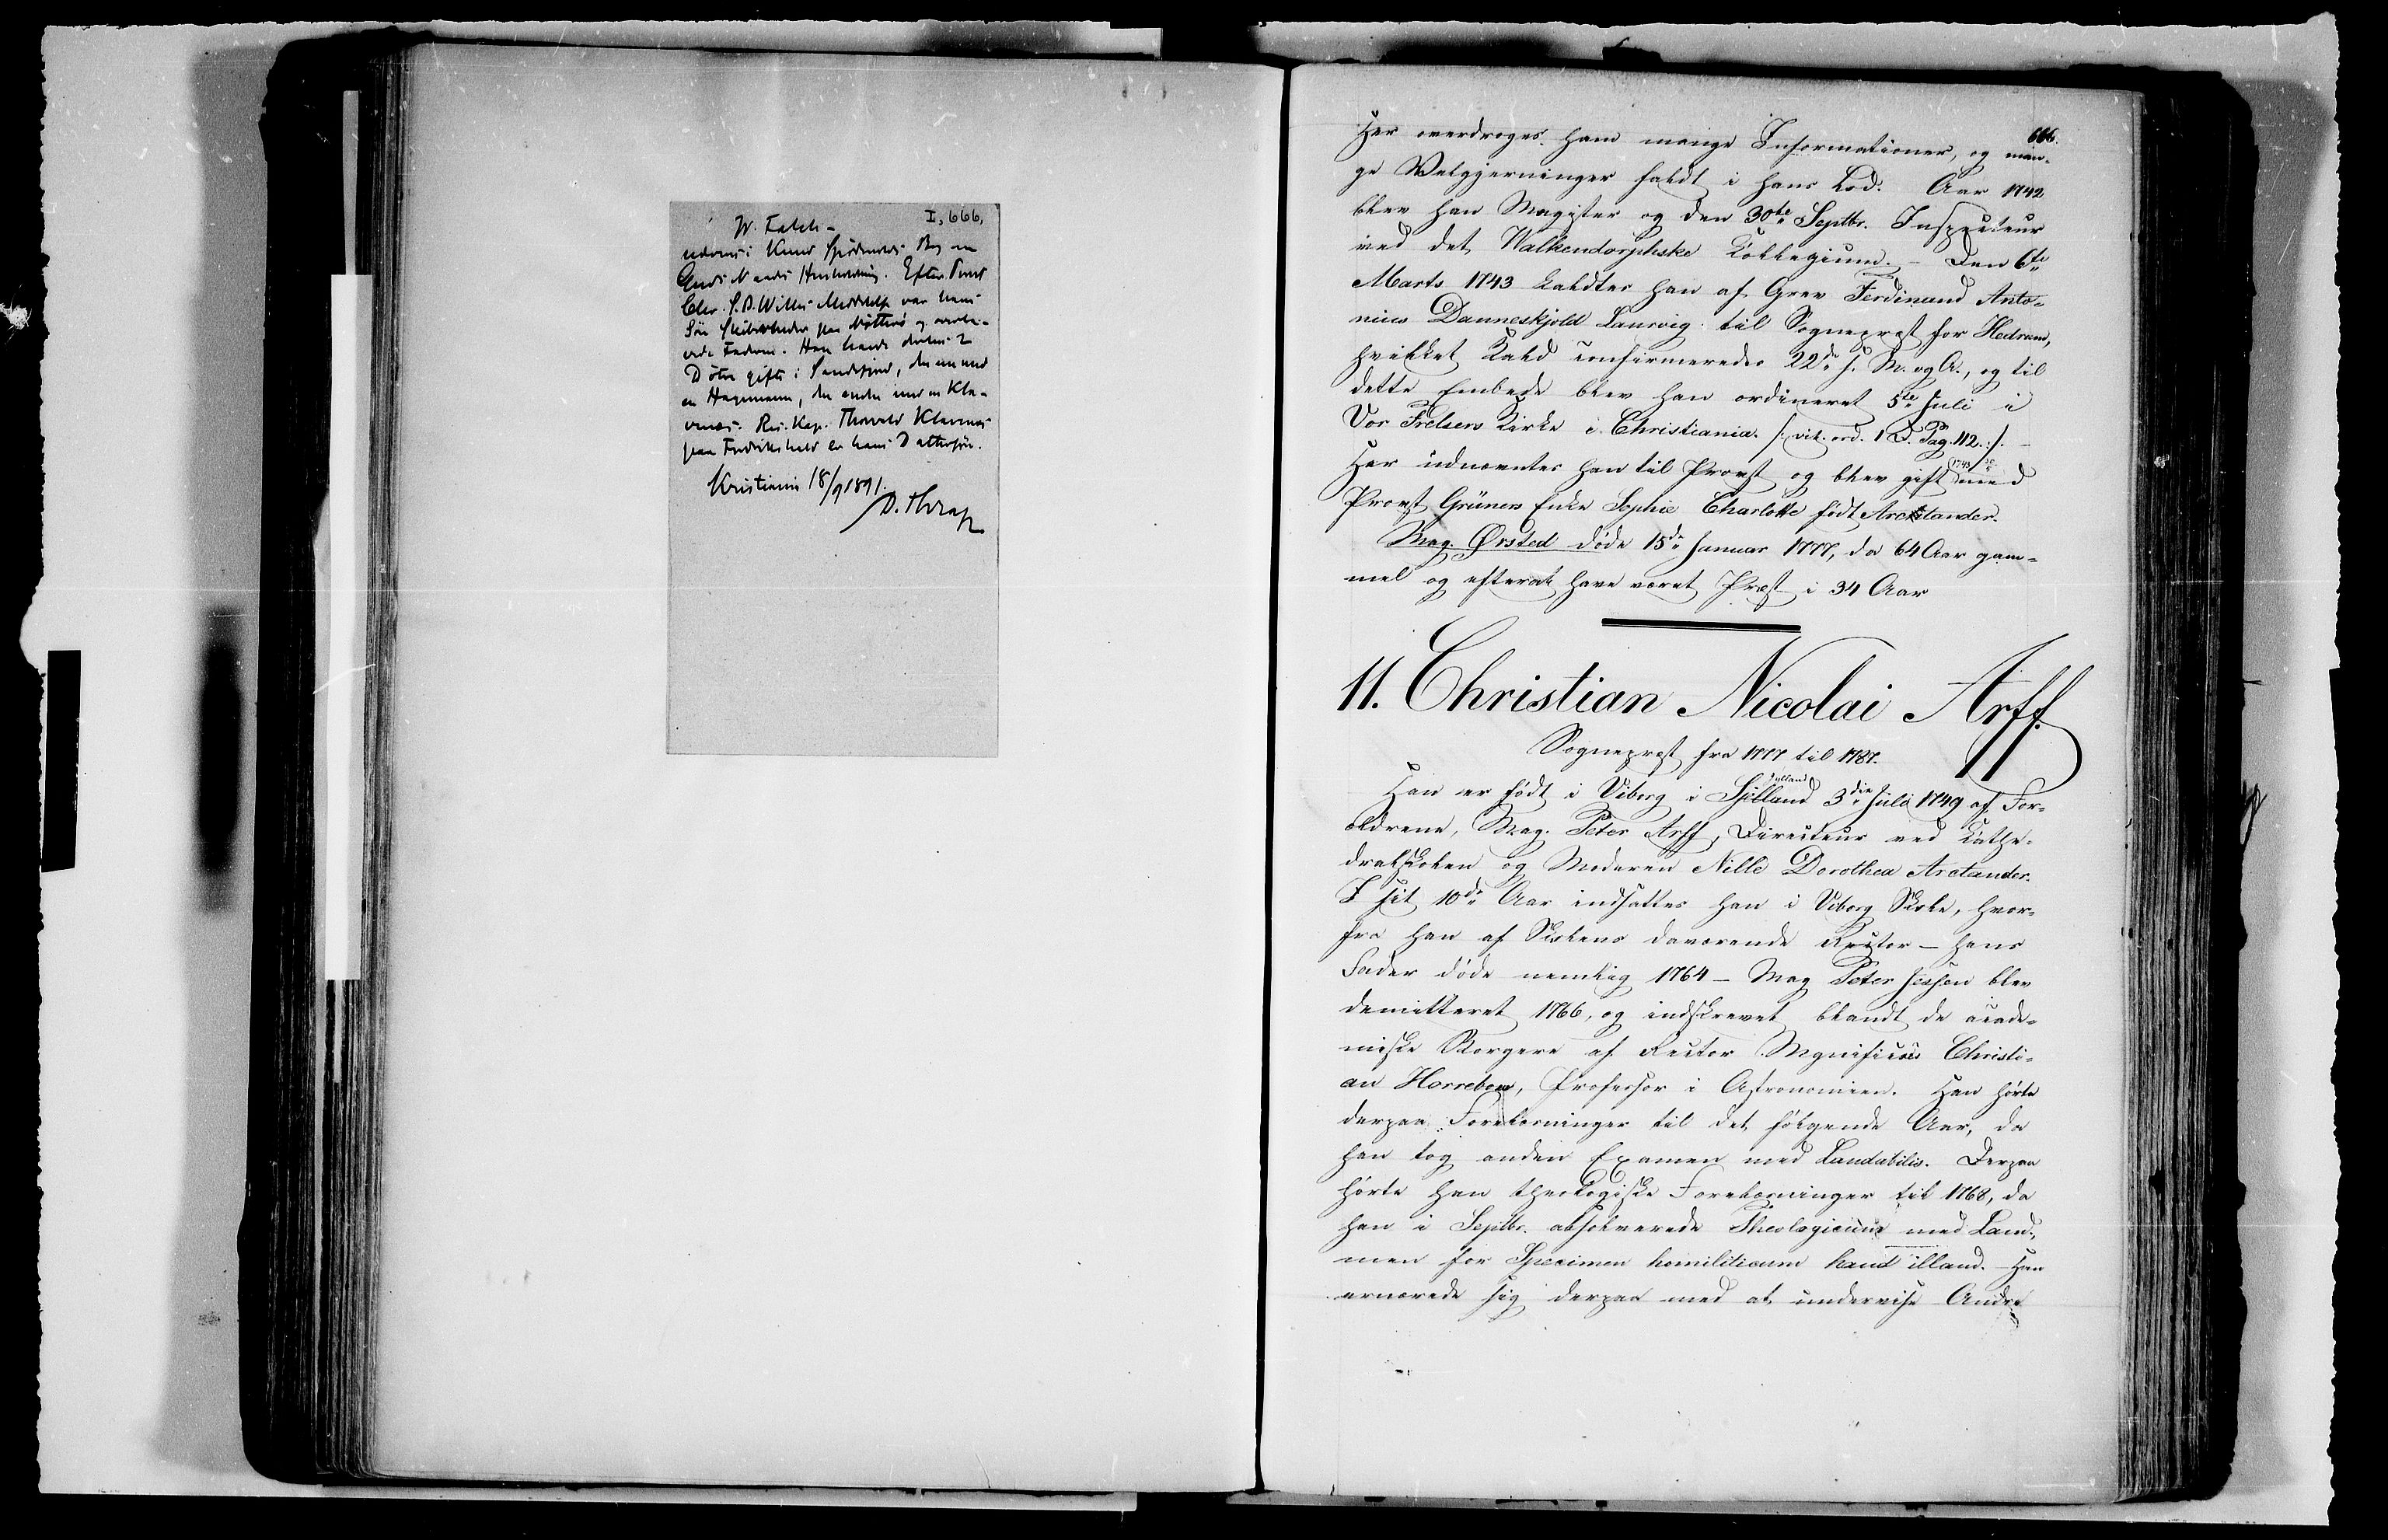 I, 666.
W. Falch
udvæs i Knud Bog en
Guds Naades Husholdning. Efter Provst
Chr. S. B. Willer Meddelelse var hans
Søn paa Nøtterø og
Faderen. Han havde desuden 2
Døtre gifte i Sandefjord, den ene med
en Hagemann, den anden med en Kla-
venæs. Res. Kap. Thorvald Klavenæs
paa Fredrikshald er hans Dattersøn.
Kristiania 18/9 1891.
D. Thrap
666.
Her overdroges ham mange Informationer, og man-
ge Velgjerninger faldt i hans Lod. Aar 1742
blev han Magister og den 30te Septbr. Inspecteur
ved det Walkendorphske Collegium. – Den 6te
Marts 1743 kaldtes han af Grev Ferdinand Anto-
nius Danneskjold Laurvig til Sognepræst for Hedrum,
hvilket Kald confirmeredes 22de s. M. og A., og til
dette Embede blev han ordineret 5te Juli i
Vor Frelsers Kirke i Christiania. /: vit. ord. 1 D. Pag. 112. :/. –
Her udnævntes han til Provst og blev gift 1743 med
Provst Grüners Enke Sophie Charlotte født Arctander.
Mag. Ørsted døde 15de Januar 1777, da 64 Aar gam-
mel og efterat have været Præst i 34 Aar
11. Christian Nicolai Arff.
Sognepræst fra 1777 til 1787.
Jylland
Han er født i Viborg i Sjilland 3die Juli 1749 af For-
ældrene, Mag. Peter Arff, Directeur ved Kathe-
dralskolen og Moderen Nille Dorothea Arctander.
I sit 10de Aar indsattes han i Viborg Skole, hvor-
fra han af Skolens daværende Rector – hans
Fader døde nemlig 1764 – Mag Peter Jessen blev
demitteret 1766, og indskrevet blandt de acade-
miske Borgere af Rector Mgnificus Christi-
an Horrebow, Professor i Astronomien. Han hørte
derpaa Forelæsninger til det følgende Aar, da
han tog anden Examen med Laudabilis. Derpaa
hørte han theologiske Forelæsninger til 1768, da
han i Septbr. absolverede Theologicum med Laud.,
men for Specimen homiliticum haud illaud. – Han
ernærede sig derpaa med at undervise Andre